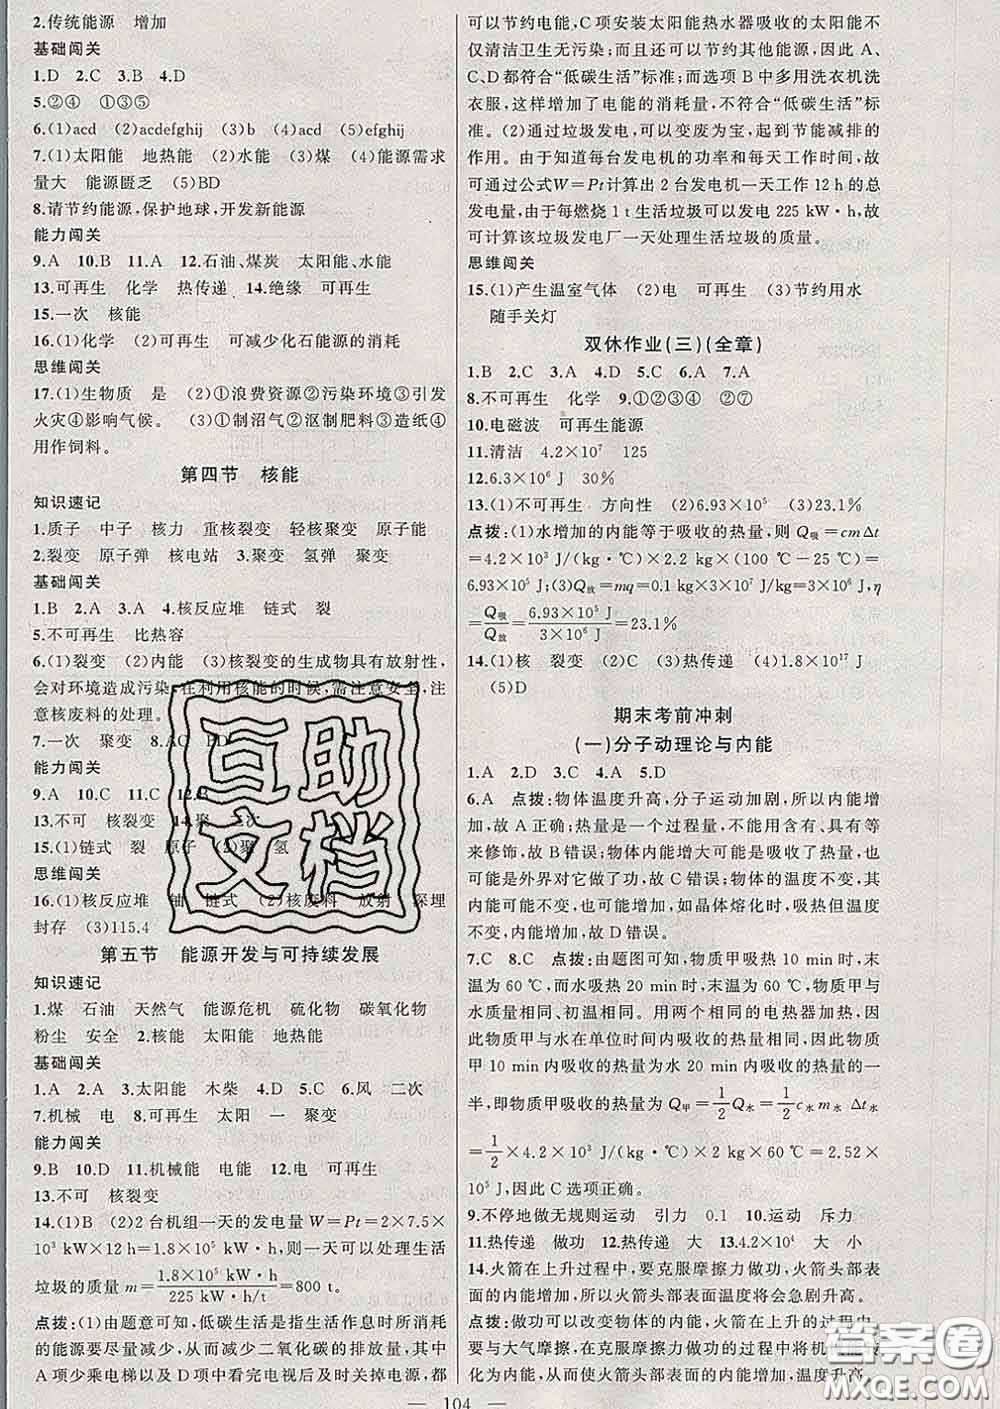 2.传统能源　增加
基础闯关
1.D　2.C　3.B　4.D
5.②④　①③⑤
6.(1)acd　(2)acdefghij　(3)b　(4)acd　(5)efghij
7.(1)太阳能　地热能　(2)水能　(3)煤　(4)能源需求
量大　能源匮乏　(5)BD
8.请节约能源,保护地球,开发新能源
能力闯关
9.A　10.B　11.A　12.石油、煤炭　太阳能、水能
13.可再生　化学　热传递　14.绝缘　可再生
15.一次　核能
16.(1)化学　(2)可再生　可减少化石能源的消耗
思维闯关
17.(1)生物质　是　(2)①浪费资源②污染环境③引发
火灾④影响气候。　(3)①制沼气②沤制肥料③造纸④
用作饲料。
第四节　核能
知识速记
1.质子　中子　核力　重核裂变　轻核聚变　原子能
2.裂变　原子弹　核电站　3.聚变　氢弹　聚变
基础闯关
1.B　2.A　3.A　4.核反应堆　链式　裂
5.不可再生　比热容
6.(1)裂变　(2)内能　(3)核裂变的生成物具有放射性,
会对环境造成污染,在利用核能的时候,需注意安全,注
意核废料的处理。
7.一次　聚变　8.AC　BD
能力闯关
9.A　10.C　11.C　12.
13.不可　核裂变　14.聚　二次
15.(1)链式　裂　原子　(2)聚　氢
思维闯关
16.(1)核反应堆　轴　链式　(2)核废料　放射　深埋
封存　(3)115.4
第五节　能源开发与可持续发展
知识速记
1.煤　石油　天然气　能源危机　硫化物　碳氧化物
粉尘　安全　2.核能　太阳能　地热能
基础闯关
1.A　2.A　3.太阳能　木柴　4.D　5.C　6.风　二次
7.机械　电　8.可再生　太阳　一　聚变
能力闯关
9.B　10.D　11.机械能　电能　12.电　可再生
13.不可　核裂变
14.(1)B　(2)2台机组一天的发电量 W=Pt=2×7.5×
10³ kW×12 h=1.8×10⁵ kW·h,则一天可以处理生活
垃圾的质量 m=1.8×10⁵ kW·h/225 kW·h/t=800 t。
点拨:(1)由题意可知,低碳生活是指生活作息时所消耗
的能源要尽量减少,从而减少二氧化碳的排放量,其中
A项少乘电梯以及D项中看完电视及时关掉电源,都
可以节约电能,C项安装太阳能热水器吸收的太阳能不
仅清洁卫生无污染;而且还可以节约其他能源,因此A、
C、D都符合“低碳生活”标准;而选项B中多用洗衣机洗
衣服,这样增加了电能的消耗量,不符合“低碳生活”标
准。(2)通过垃圾发电,可以变废为宝,起到节能减排的
作用。由于知道每台发电机的功率和每天工作时间,故
可通过公式W=Pt计算出2台发电机一天工作12 h的总
发电量,由于每燃烧1 t生活垃圾可以发电225 kW·h,故
可计算该垃圾发电厂一天处理生活垃圾的质量。
思维闯关
15.(1)产生温室气体　(2)电　可再生　(3)节约用水
随手关灯
双休作业(三)(全章)
1.B　2.C　3.A　4.D　5.C　6.A　7.A
8.不可再生　化学　9.①②③④　②⑦
10.电磁波　可再生能源
11.清洁　4.2×10⁷　125
12.6.3×10⁶ J　30%
13.(1)不可再生　方向性　(2)6.93×10⁵　(3)23.1%
点拨:(1)水增加的内能等于吸收的热量,则Q吸=cmΔt
=4.2×10³ J/(kg·℃)×2.2 kg×(100 ℃-25 ℃)=
6.93×10⁵ J;(3)Q放=mq=0.1 kg×3×10⁷ J/kg=3×10⁶ J,η
=Q吸/Q放=6.93×10⁵ J/3×10⁶ J=23.1%
14.(1)核　裂变　(2)C　(3)热传递　(4)1.8×10¹⁷ J
(5)D
期末考前冲刺
(一)分子动理论与内能
1.A　2.D　3.C　4.A　5.D
6.A　点拨:物体温度升高,分子运动加剧,所以内能增
加,故A正确;热量是一个过程量,不能用含有、具有等
来修饰,故B错误;物体内能增大可能是吸收了热量,也
可能是外界对它做了功,故C错误;物体的温度不变,其
内能可能不变,也可能改变。如晶体熔化时,吸热但温度
不变,内能增加,故D错误。
7.C　8.C　点拨:由题图可知,物质甲吸热10 min时,末
温为60 ℃,而水吸热20 min时,末温为60 ℃,物质甲与
水质量相同、初温相同。用两个相同的电热器加热,故
物质甲与水在单位时间内吸收的热量相同,所以,物质
甲10 min内吸收的热量为水20 min内吸收热量的一
半,即物质甲吸收的热量为Q甲=1/2Q水=1/2c水m水Δt水
=1/2×4.2×10³ J/(kg·℃)×2 kg×60 ℃=2.52×
10⁵ J,因此C选项正确。
9.不停地做无规则运动　引力　0.1　10.运动　斥力
11.热传递　做功　12.热传递　大　13.4.2×10⁴　大　小
14.火箭在上升过程中,要克服摩擦力做功,火箭头部表
面的内能增加,所以火箭头部表面温度将会急剧升高。
点拨:做功可以改变物体的内能,火箭在上升的过程中,
要与大气摩擦,在克服摩擦力做功的过程中将机械能
转化为内能,从而使火箭头部表面的内能增加,温度升高。
— 104 —
互助
文档
答案圈
MXQE.COM